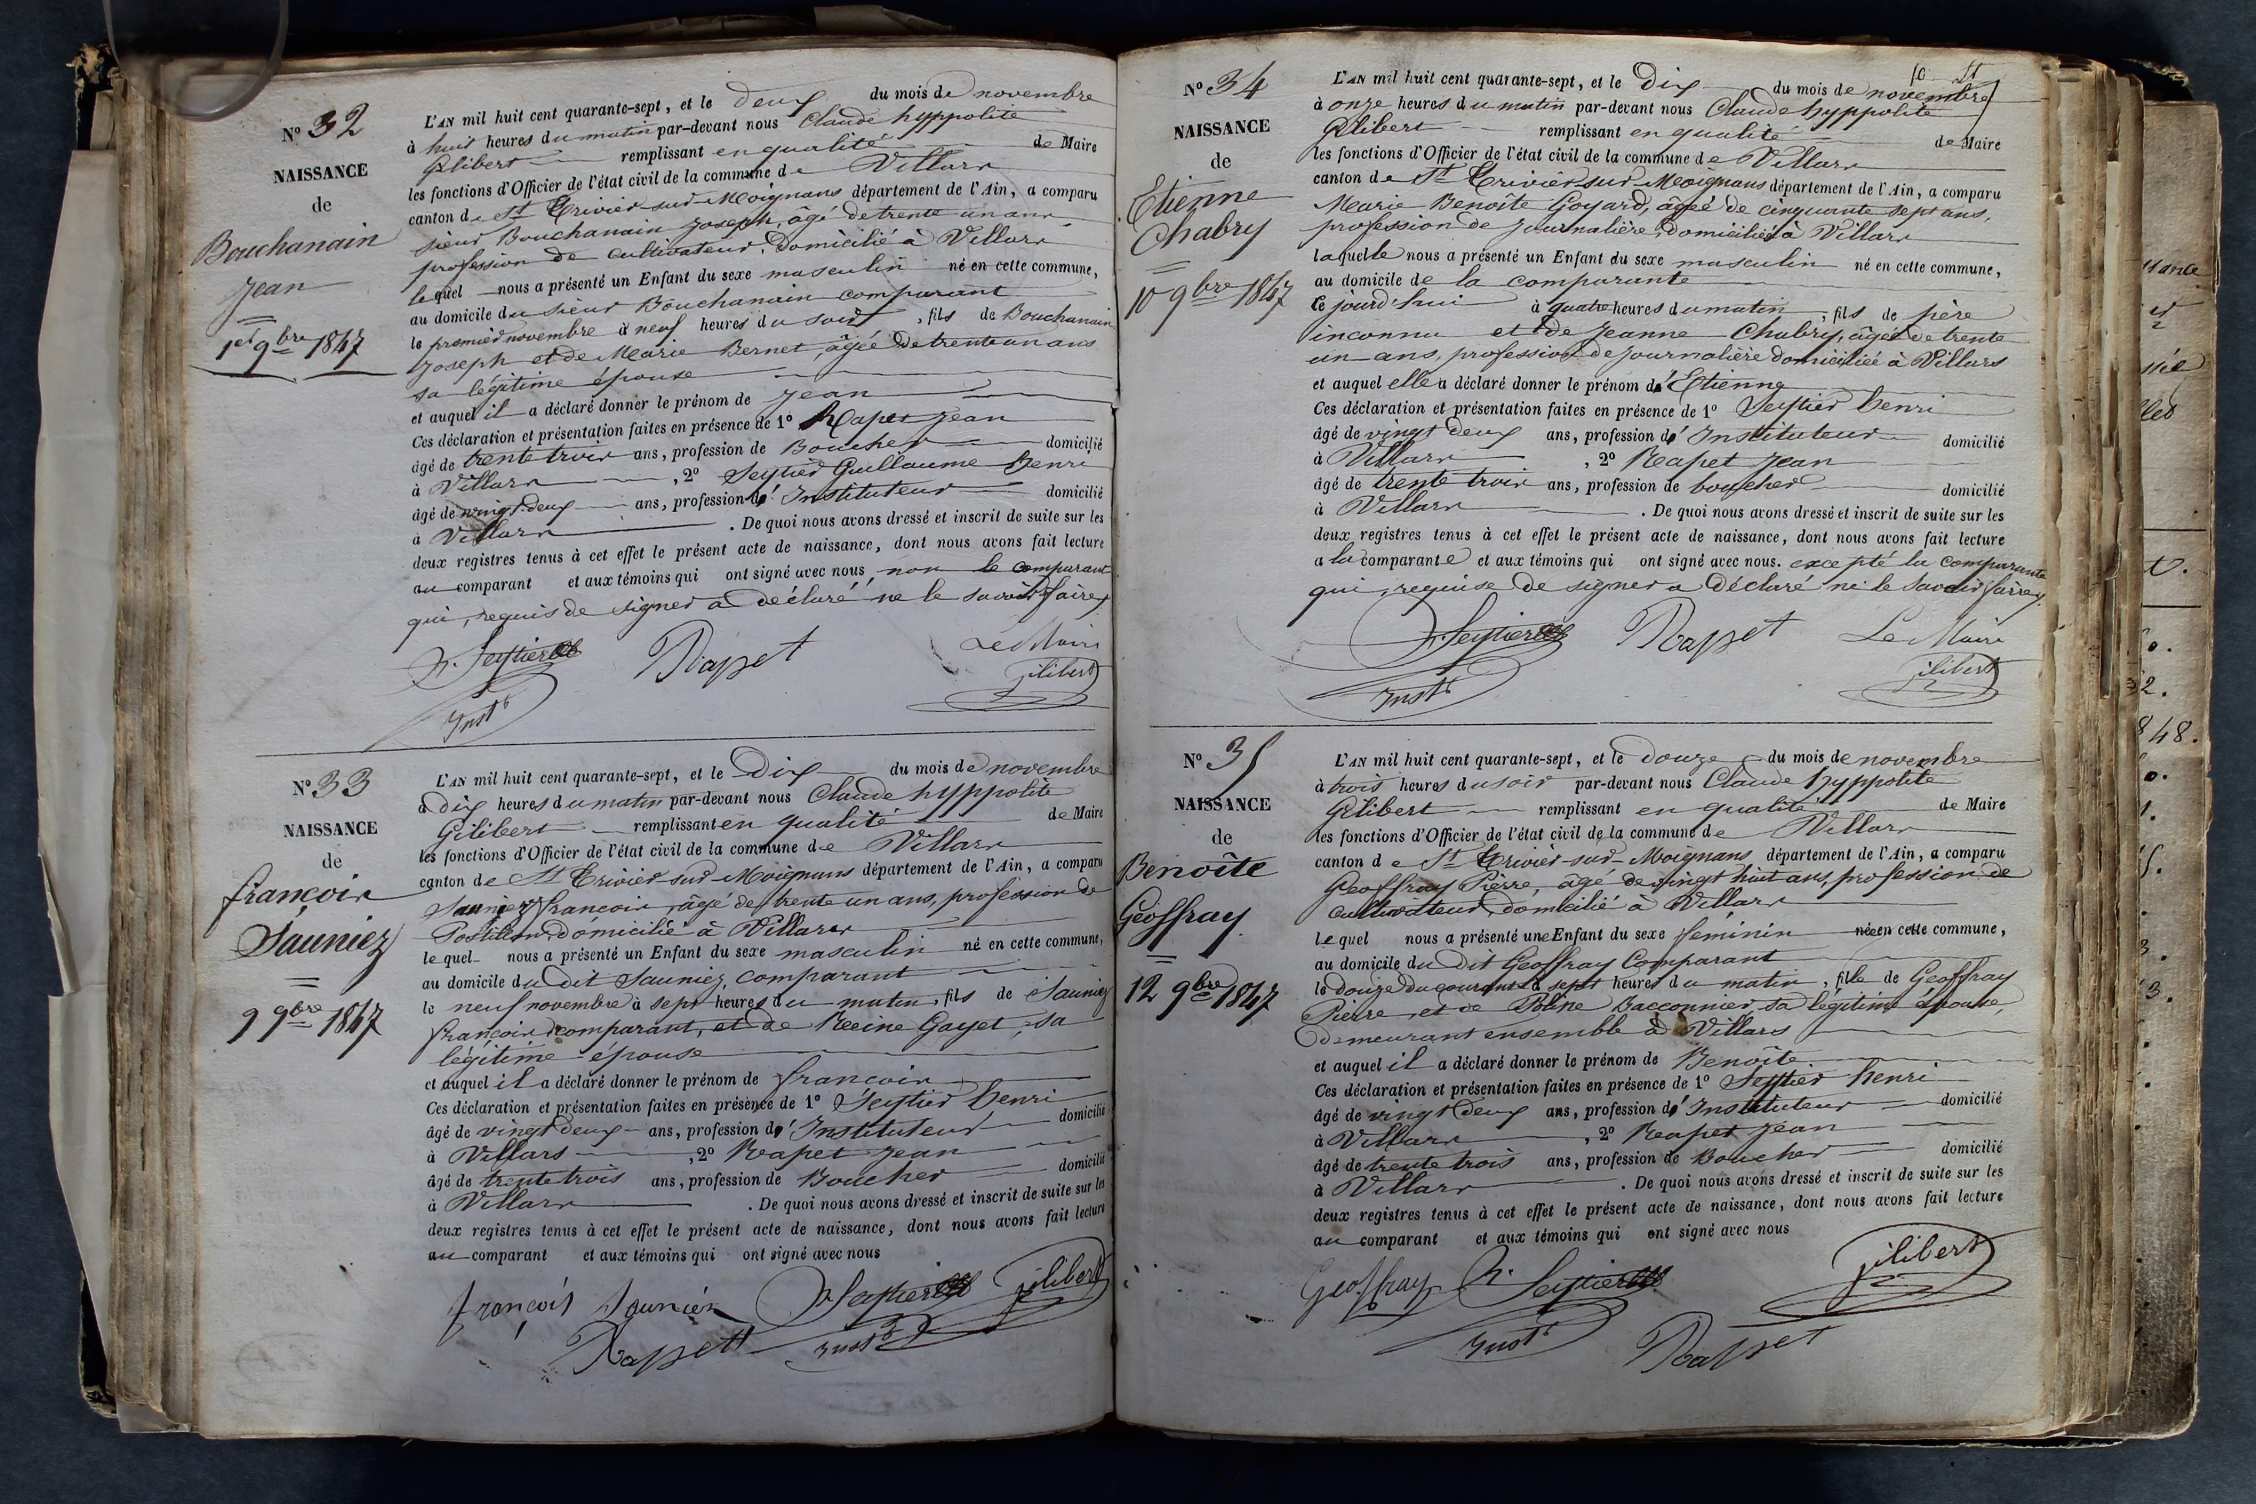 N° 32
NAISSANCE
de
Bouchanain
Jean
1er 9bre 1847
L'AN mil huit cent quarante-sept, et le deux du mois de novembre
à huit heures du matin par-devant nous Claude hyppolite
Gilibert remplissant en qualité de Maire
les fonctions d'Officier de l'état civil de la commune de Villars
canton de St Trivier sur Moignans département de l'Ain, a comparu
sieur Bouchanain Joseph, âgé de trente un ans
profession de cultivateur, domicilié à Villars
lequel nous a présenté un Enfant du sexe masculin né en cette commune,
au domicile du sieur Bouchanain comparant
le premier novembre à neuf heures du soir, fils de Bouchanain
Joseph et de Marie Bernet, âgée de trente un ans
sa légitime épouse
et auquel il a déclaré donner le prénom de Jean
Ces déclaration et présentation faites en présence de 1° Rapet Jean
âgé de trente trois ans, profession de Boucher domicilié
à Villars, 2° Seytier Guillaume henri
âgé de vingt deux ans, profession d'Instituteur domicilié
à Villars. De quoi nous avons dressé et inscrit de suite sur les
deux registres tenus à cet effet le présent acte de naissance, dont nous avons fait lecture
au comparant et aux témoins qui ont signé avec nous, non le comparant
qui, requis de signer a déclaré ne le savoir faire
h. Seytier Rapet Le Maire
Gilibert
Instr
N° 33
NAISSANCE
de
françois
Sauniez
9 9bre 1847
L'AN mil huit cent quarante-sept, et le Dix du mois de novembre
à dix heures du matin par-devant nous Claude hyppolite
Gilibert remplissant en qualité de Maire
les fonctions d'Officier de l'état civil de la commune de Villars
canton de St Trivier sur Moignans département de l'Ain, a comparu
Sauniez françois, âgé de trente un ans, profession de
Postillon, domicilié à Villars
lequel nous a présenté un Enfant du sexe masculin né en cette commune,
au domicile du dit Sauniez, comparant
le neuf novembre à sept heures du matin, fils de Sauniez
françois comparant, et de Reine Gayet, sa
légitime épouse
et auquel il a déclaré donner le prénom de françois
Ces déclaration et présentation faites en présence de 1° Seytier henri
âgé de vingt deux ans, profession d'Instituteur domicilié
à Villars, 2° Rapet Jean
âgé de trente trois ans, profession de Boucher domicilié
à Villars. De quoi nous avons dressé et inscrit de suite sur les
deux registres tenus à cet effet le présent acte de naissance, dont nous avons fait lecture
au comparant et aux témoins qui ont signé avec nous
françois Saunier h. Seytier Gilibert
Rapet Instr
N° 34
NAISSANCE
de
Etienne
Chabry
10 9bre 1847
L'AN mil huit cent quarante-sept, et le Dix du mois de novembre
à onze heures du matin par-devant nous Claude hyppolite
Gilibert remplissant en qualité de Maire
les fonctions d'Officier de l'état civil de la commune de Villars
canton de St Trivier sur Moignans département de l'Ain, a comparu
Marie Benoîte Goyard, âgée de cinquante sept ans,
profession de journalière, domiciliée à Villars
laquelle nous a présenté un Enfant du sexe masculin né en cette commune,
au domicile de la comparante
Ce jourd'hui à quatre heures du matin, fils de père
inconnu et de Jeanne Chabry, âgée de trente
un ans, profession de journalière domiciliée à Villars
et auquel elle a déclaré donner le prénom d'Etienne
Ces déclaration et présentation faites en présence de 1° Seytier henri
âgé de vingt deux ans, profession d'Instituteur domicilié
à Villars, 2° Rapet Jean
âgé de trente trois ans, profession de boucher domicilié
à Villars. De quoi nous avons dressé et inscrit de suite sur les
deux registres tenus à cet effet le présent acte de naissance, dont nous avons fait lecture
a la comparante et aux témoins qui ont signé avec nous. excepté la comparante
qui, requise de signer a déclaré ne le savoir faire
h. Seytier Rapet Le Maire
Gilibert
Instr
N° 35
NAISSANCE
de
Benoîte
Geoffray
12 9bre 1847
L'AN mil huit cent quarante-sept, et le douze du mois de novembre
à trois heures du soir par-devant nous Claude hyppolite
Gilibert remplissant en qualité de Maire
les fonctions d'Officier de l'état civil de la commune de Villars
canton de St Trivier sur Moignans département de l'Ain, a comparu
Geoffray Pierre, âgé de vingt huit ans, profession de
cultivateur, domicilié à Villars
lequel nous a présenté une Enfant du sexe féminin née en cette commune,
au domicile du dit Geoffray Comparant
le douze du courant à sept heures du matin, fille de Geoffray
Pierre et de Poline Bacconnier, sa légitime épouse,
demeurant ensemble à Villars
et auquel il a déclaré donner le prénom de Benoîte
Ces déclaration et présentation faites en présence de 1° Seytier henri
âgé de vingt deux ans, profession d'Instituteur domicilié
à Villars, 2° Rapet Jean
âgé de trente trois ans, profession de Boucher domicilié
à Villars. De quoi nous avons dressé et inscrit de suite sur les
deux registres tenus à cet effet le présent acte de naissance, dont nous avons fait lecture
au comparant et aux témoins qui ont signé avec nous
Geoffray h. Seytier Gilibert
Instr Rapet